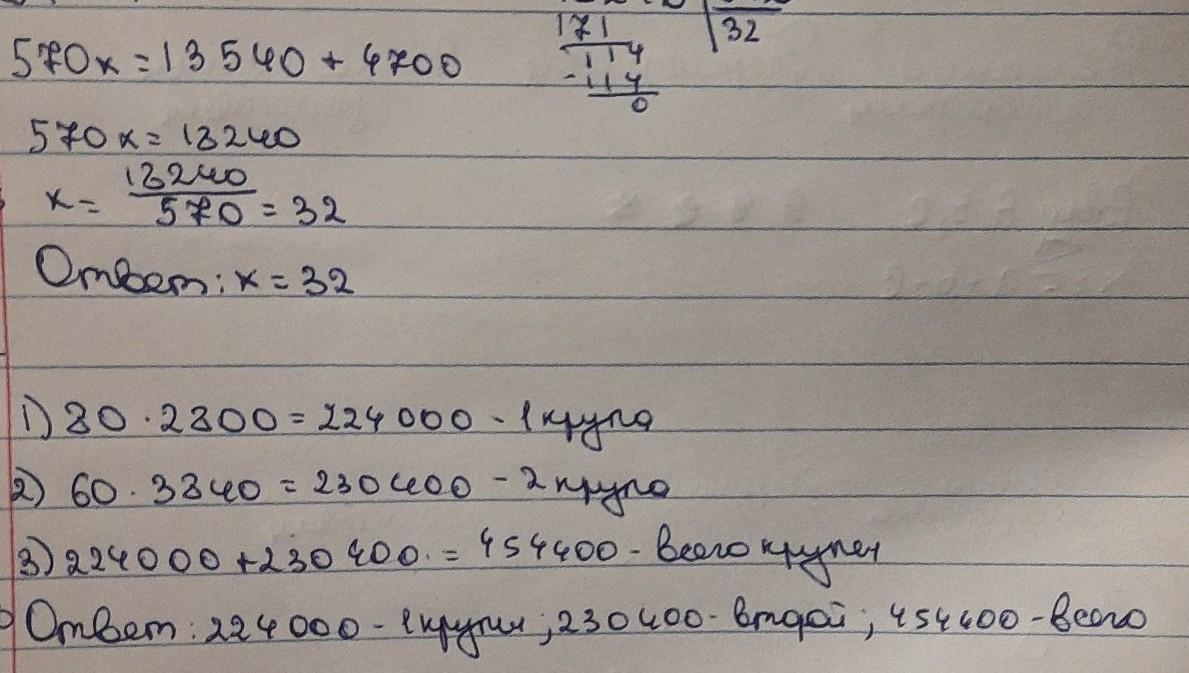 171 32
114
570x = 13540 + 4700
-114
0
570x = 18240
x = 18240/570 = 32
Ответ: x = 32
1) 80 · 2800 = 224000 - 1 крупа
2) 60 · 3840 = 230400 - 2 крупа
3) 224000 + 230400 = 454400 - всего крупы
Ответ: 224000 - 1 крупы; 230400 - второй; 454400 - всего